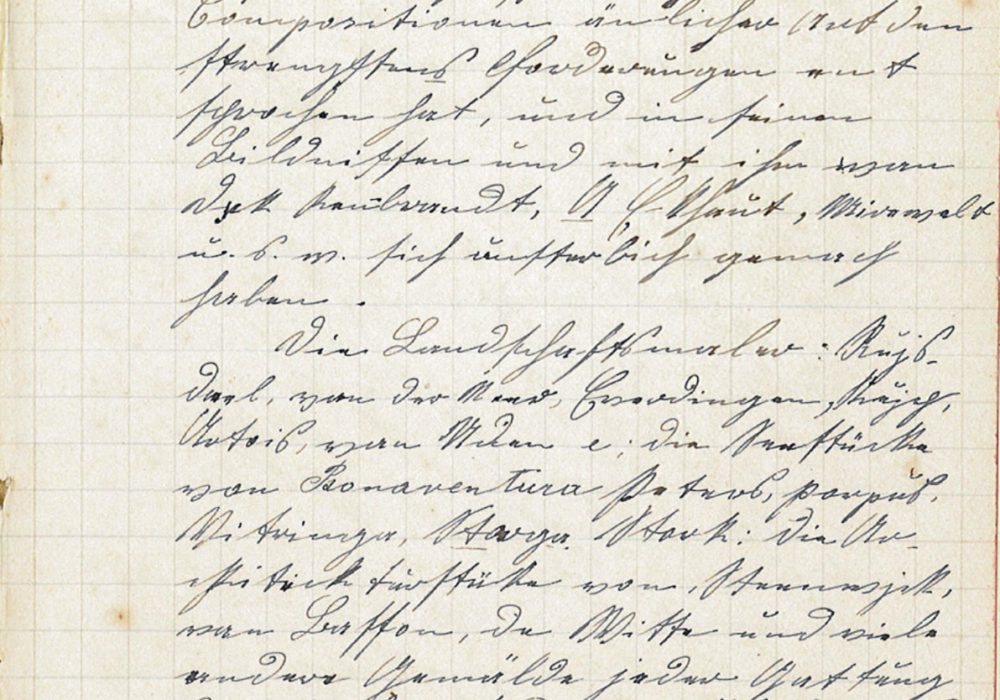 Compositionen änlicher Art den
strengstens Forderungen ent
sprochen hat, und in seinen
Bildnissen und mit ihm wan
Dyk Rembrandt, Mirewelt
u. s. w. sich unsterbich gemach
haben.
Die Landschaftsmaler: Rujs-
dael, van der Neer, Everdingen, Rujsch,
Artois, van Uden e; die Seestücke
von Bonaventura Peters, Parpus,
Vitringa, Storga. Stork: die Ar-
chiteckturstüke von, Steenwjek,
van Bassen, de Witte und viele
andere Gemälde jeder Gattung